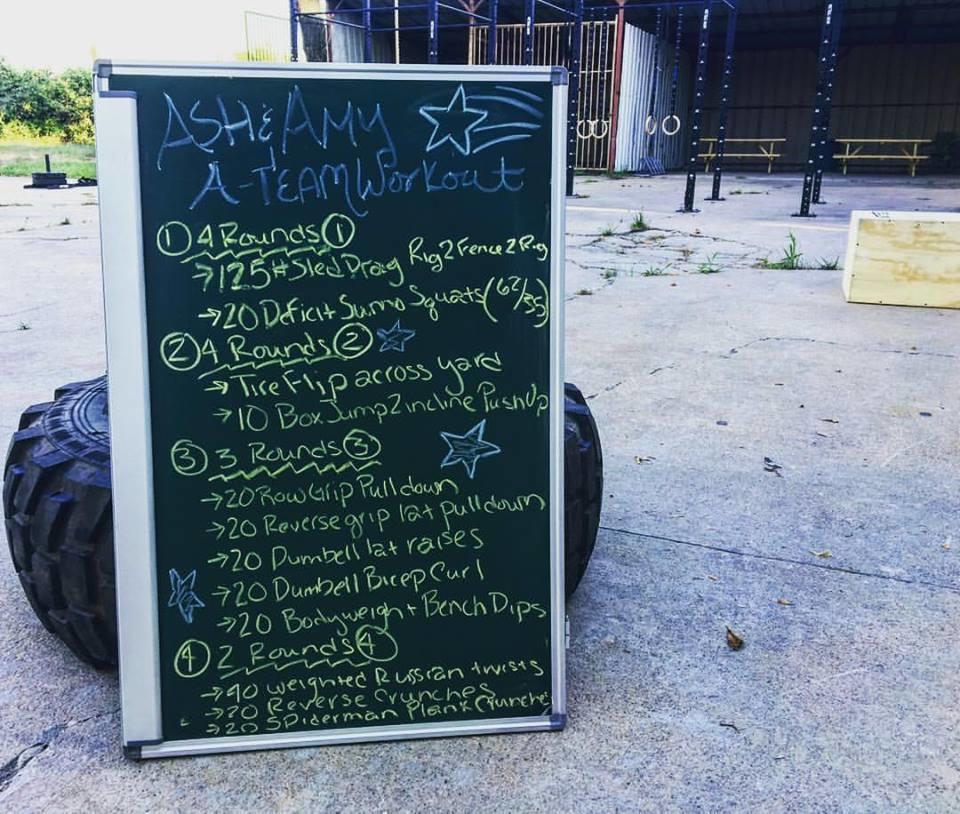 ASH & AMY
A-TEAM Workout
① 4 Rounds ①
→ 125# Sled Drag Rig2Fence2Rig
→ 20 Deficit Sumo Squats (62/35)
② 4 Rounds ②
→ Tire Flip across yard
→ 10 Box Jump 2 incline PushUp
③ 3 Rounds ③
→ 20 Row Grip Pull down
→ 20 Reverse grip lat pull down
→ 20 Dumbell lat raises
→ 20 Dumbell Bicep Curl
→ 20 Bodyweight Bench Dips
④ 2 Rounds ④
→ 40 weighted Russian twists
→ 20 Reverse Crunches
→ 20 Spiderman Plank Crunches